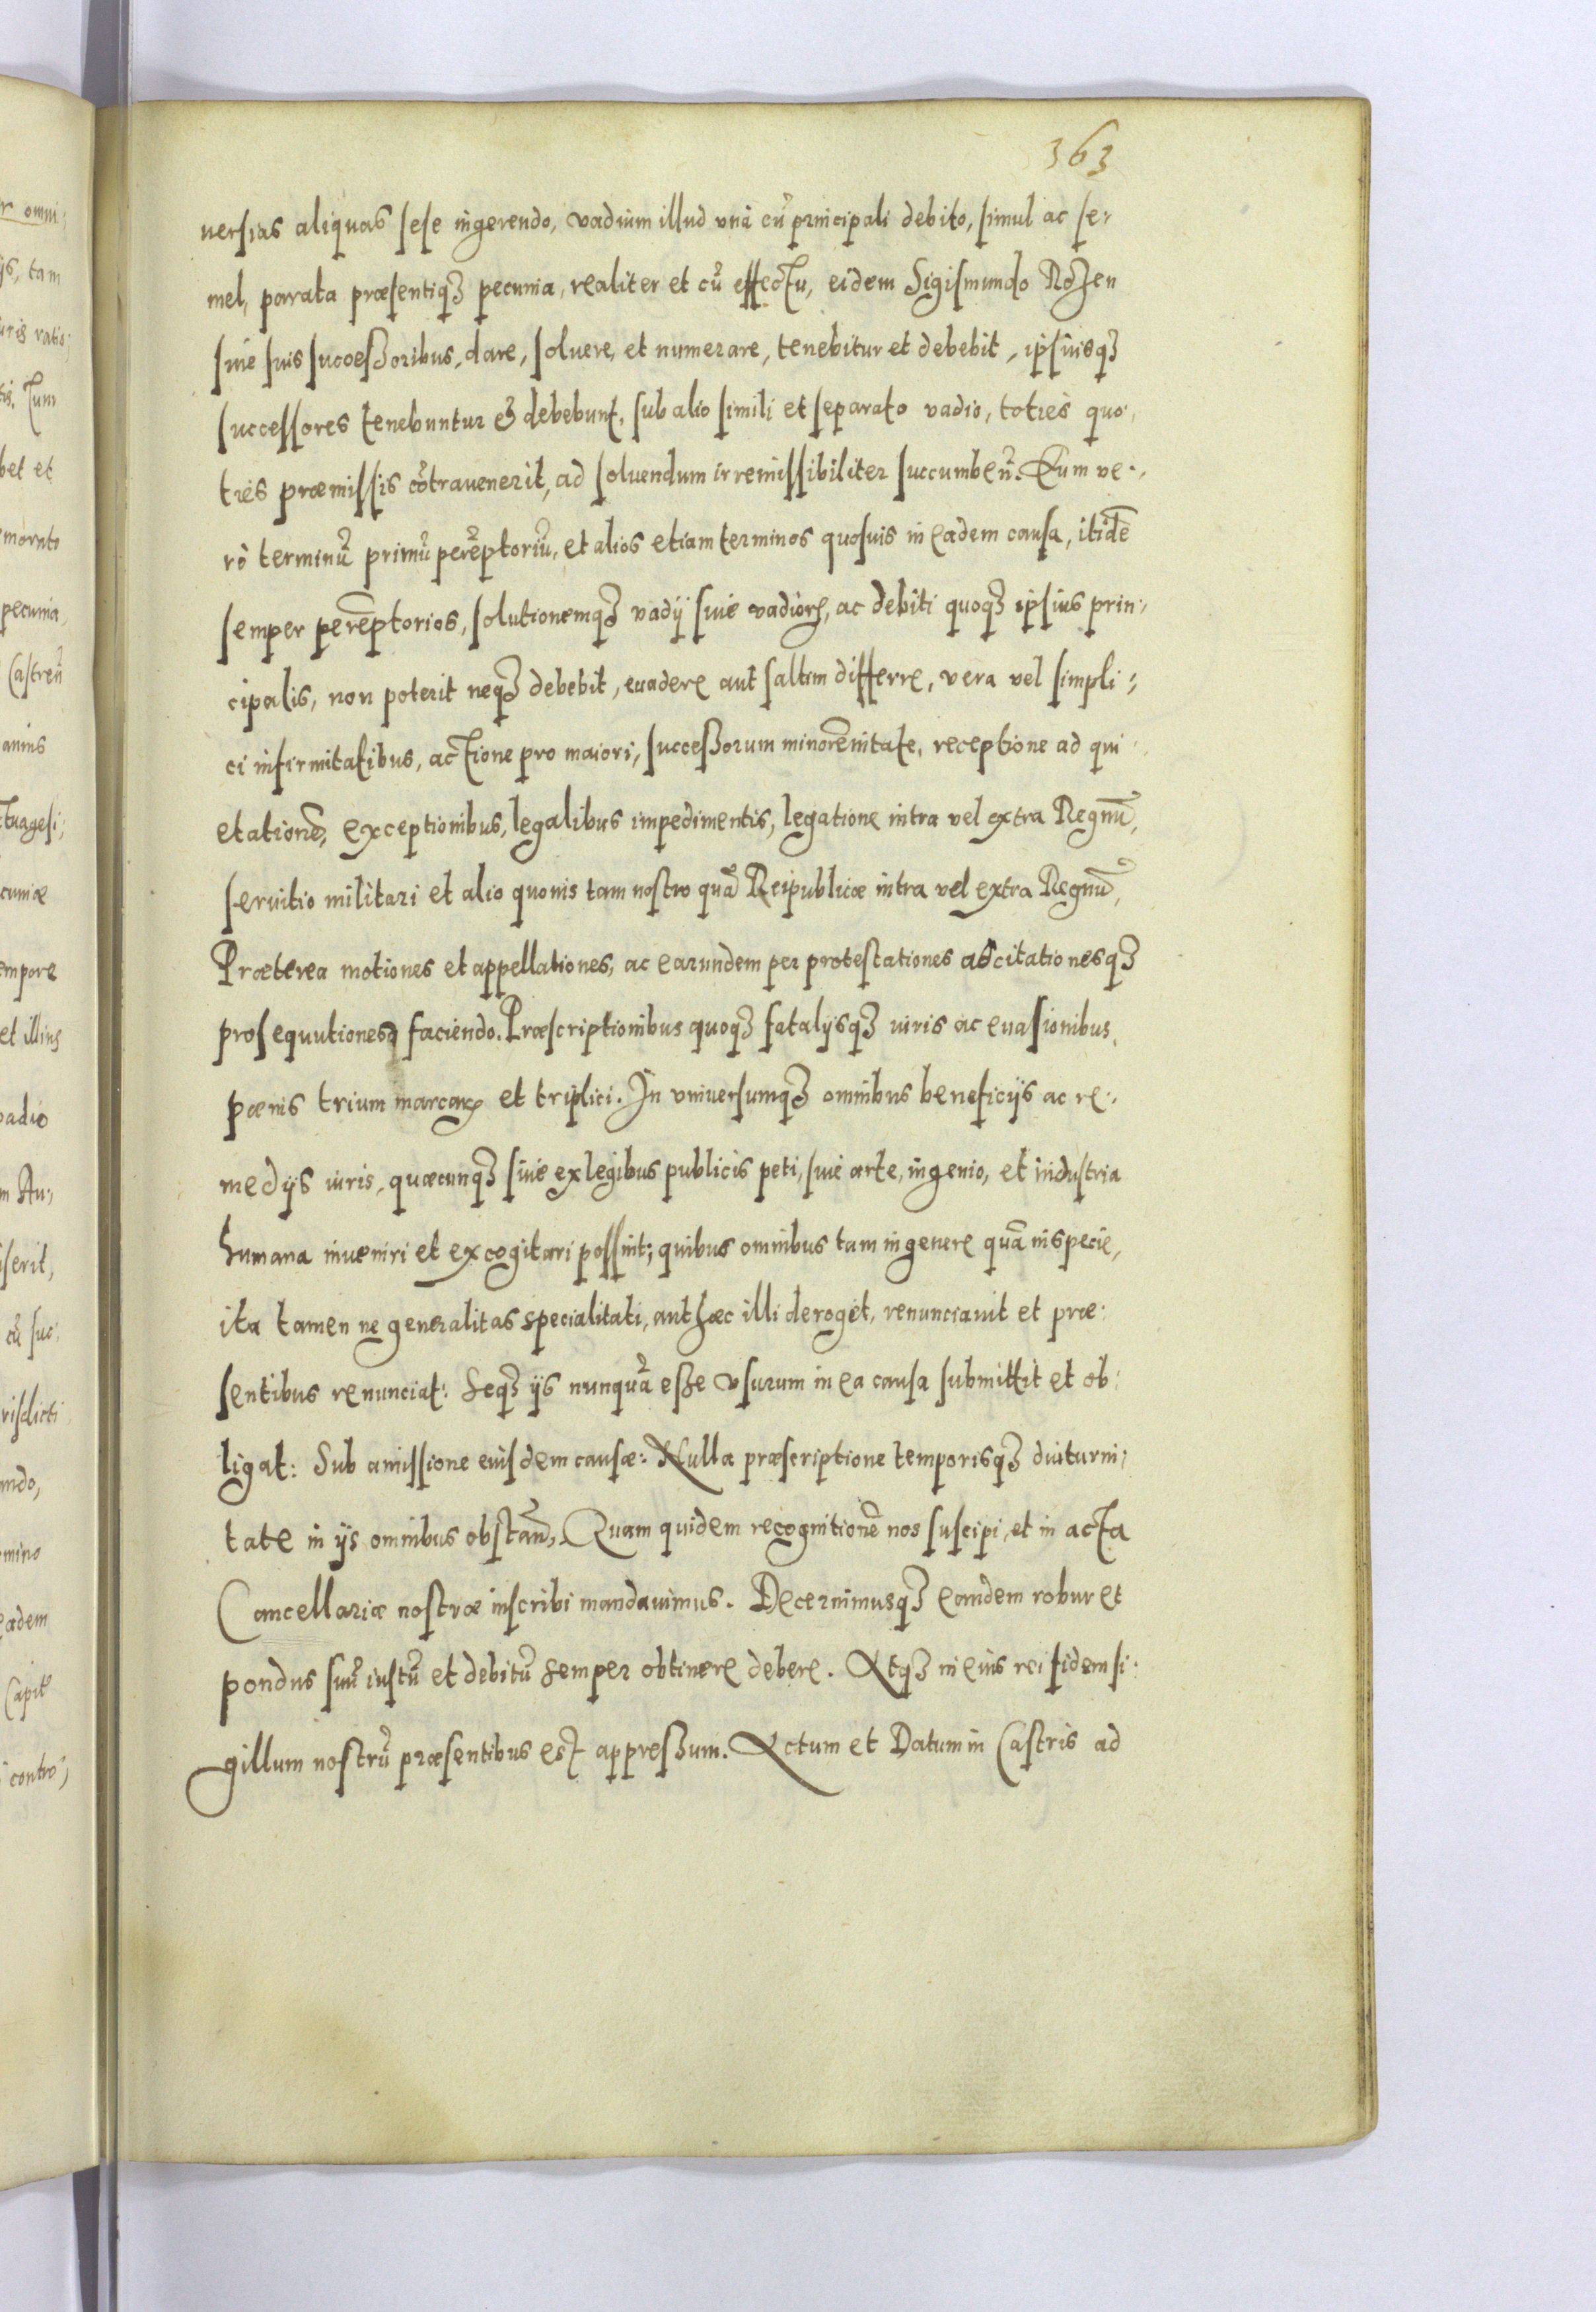 363
uersias aliquas sese ingerendo, vadium illud unà cũ principali debito, simul ac se-
mel, parata præsentiq3 pecunia, realiter et cũ effectu, eidem Sigismundo Rożen
siue suis successoribus, dare, soluere, et numerare, tenebitur et debebit, ipsiusq3
successores tenebuntur & debebunt, sub alio simili et separato vadio, toties quo-
ties præmissis cõtrauenerit, ad soluendum irremissibiliter succumbeñ. Eum ve-
rò terminũ primũ perẽptoriũ, et alios etiam terminos quosuis in eadem causa, itidẽ
semper perẽptorios, solutionemq3 vadij siue vadiorꝝ, ac debiti quoq3 ipsius prin-
cipalis, non poterit neq3 debebit, euadere aut saltim differre, vera vel simpli-
ci infirmitatibus, actione pro maiori, successorum minorẽnitate, receptione ad qui-
etationẽ, exceptionibus, legalibus impedimentis, legatione intra vel extra Regnũ,
seruitio militari et alio quouis tam nostro quã Reipublicæ intra vel extra Regnũ,
Præterea motiones et appellationes, ac earundem per protestationes adcitationesq3
prosequutiones faciendo. Præscriptionibus quoq3 fatalijsq3 iuris ac euasionibus,
pœnis trium marcarꝝ et triplici. In vniuersumq3 omnibus beneficijs ac re-
medijs iuris, quæcunq3 siue ex legibus publicis peti, siue arte, ingenio, et industria
humana inueniri et excogitari possint; quibus omnibus tam in genere quã in specie,
ita tamen ne generalitas specialitati, aut hæc illi deroget, renunciauit et præ-
sentibus renunciat: Seq3 ijs nunquã esse vsurum in ea causa submittit et ob-
ligat: Sub amissione eiusdem causæ: Nulla præscriptione temporisq3 diuturni-
tate in ijs omnibus obstañ, Quam quidem recognitionẽ nos suscipi, et in acta
Cancellariæ nostræ inscribi mandauimus. Decernimusq3 eandem robur et
pondus suũ iustũ et debitũ semper obtinere debere. Atq3 in eius rei fidem si-
gillum nostrũ præsentibus est appressum. Actum et Datum in Castris ad